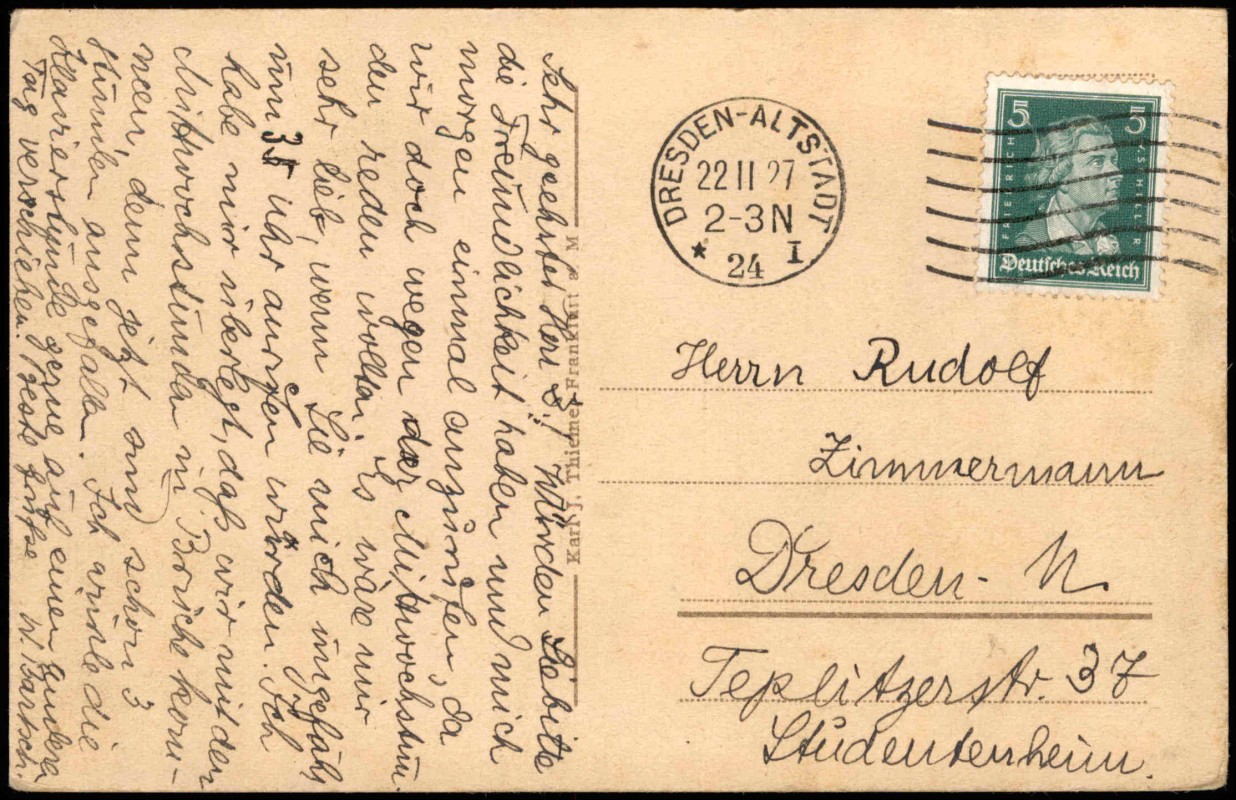 Sehr geehrter Herr Z.! Würden Sie bitte
die Freundlichkeit haben und mich
morgen einmal anzurufen, da
wir doch wegen der Mittwochstun-
den reden wollten. Es wäre mir
sehr lieb, wenn Sie mich ungefähr
um 3 Uhr anrufen würden. Ich
habe mir überlegt, daß wir mit den
Mittwochstunden in Brüche kom-
men, denn jetzt sind schon 3
Stunden ausgefallen. Ich würde die
Klavierstunde gerne auf einen andern
Tag verschieben. Beste Grüße W. Bartsch.
Karl J. Thieme, Frankfurt a M
DRESDEN-ALTSTADT
22 11 27
2-3 N
* 24 I
5 5
FRIEDRICH V. SCHILLER
Deutsches Reich
Herrn Rudolf
Zimmermann
Dresden-N.
Teplitzerstr. 37
Studentenheim.